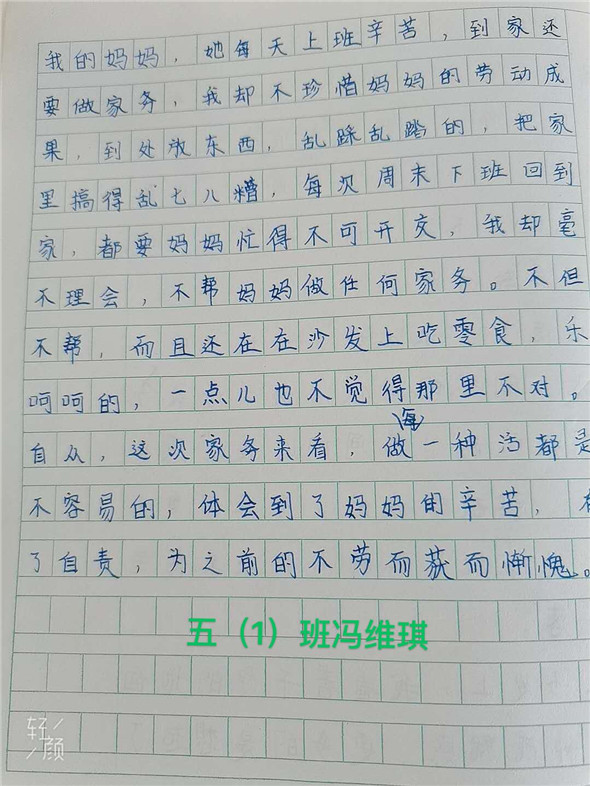 我的妈妈，她每天上班辛苦，到家还
要做家务，我却不珍惜妈妈的劳动成
果，到处放东西，乱踩乱踏的，把家
里搞得乱七八糟，每次周末下班回到
家，都要妈妈忙得不可开交，我却毫
不理会，不帮妈妈做任何家务。不但
不帮，而且还在在沙发上吃零食，乐
呵呵的，一点儿也不觉得那里不对。
自从，这次家务来看，做每一种活都是
不容易的，体会到了妈妈的辛苦，有
了自责，为之前的不劳而获而惭愧。
五（1）班冯维琪
轻颜